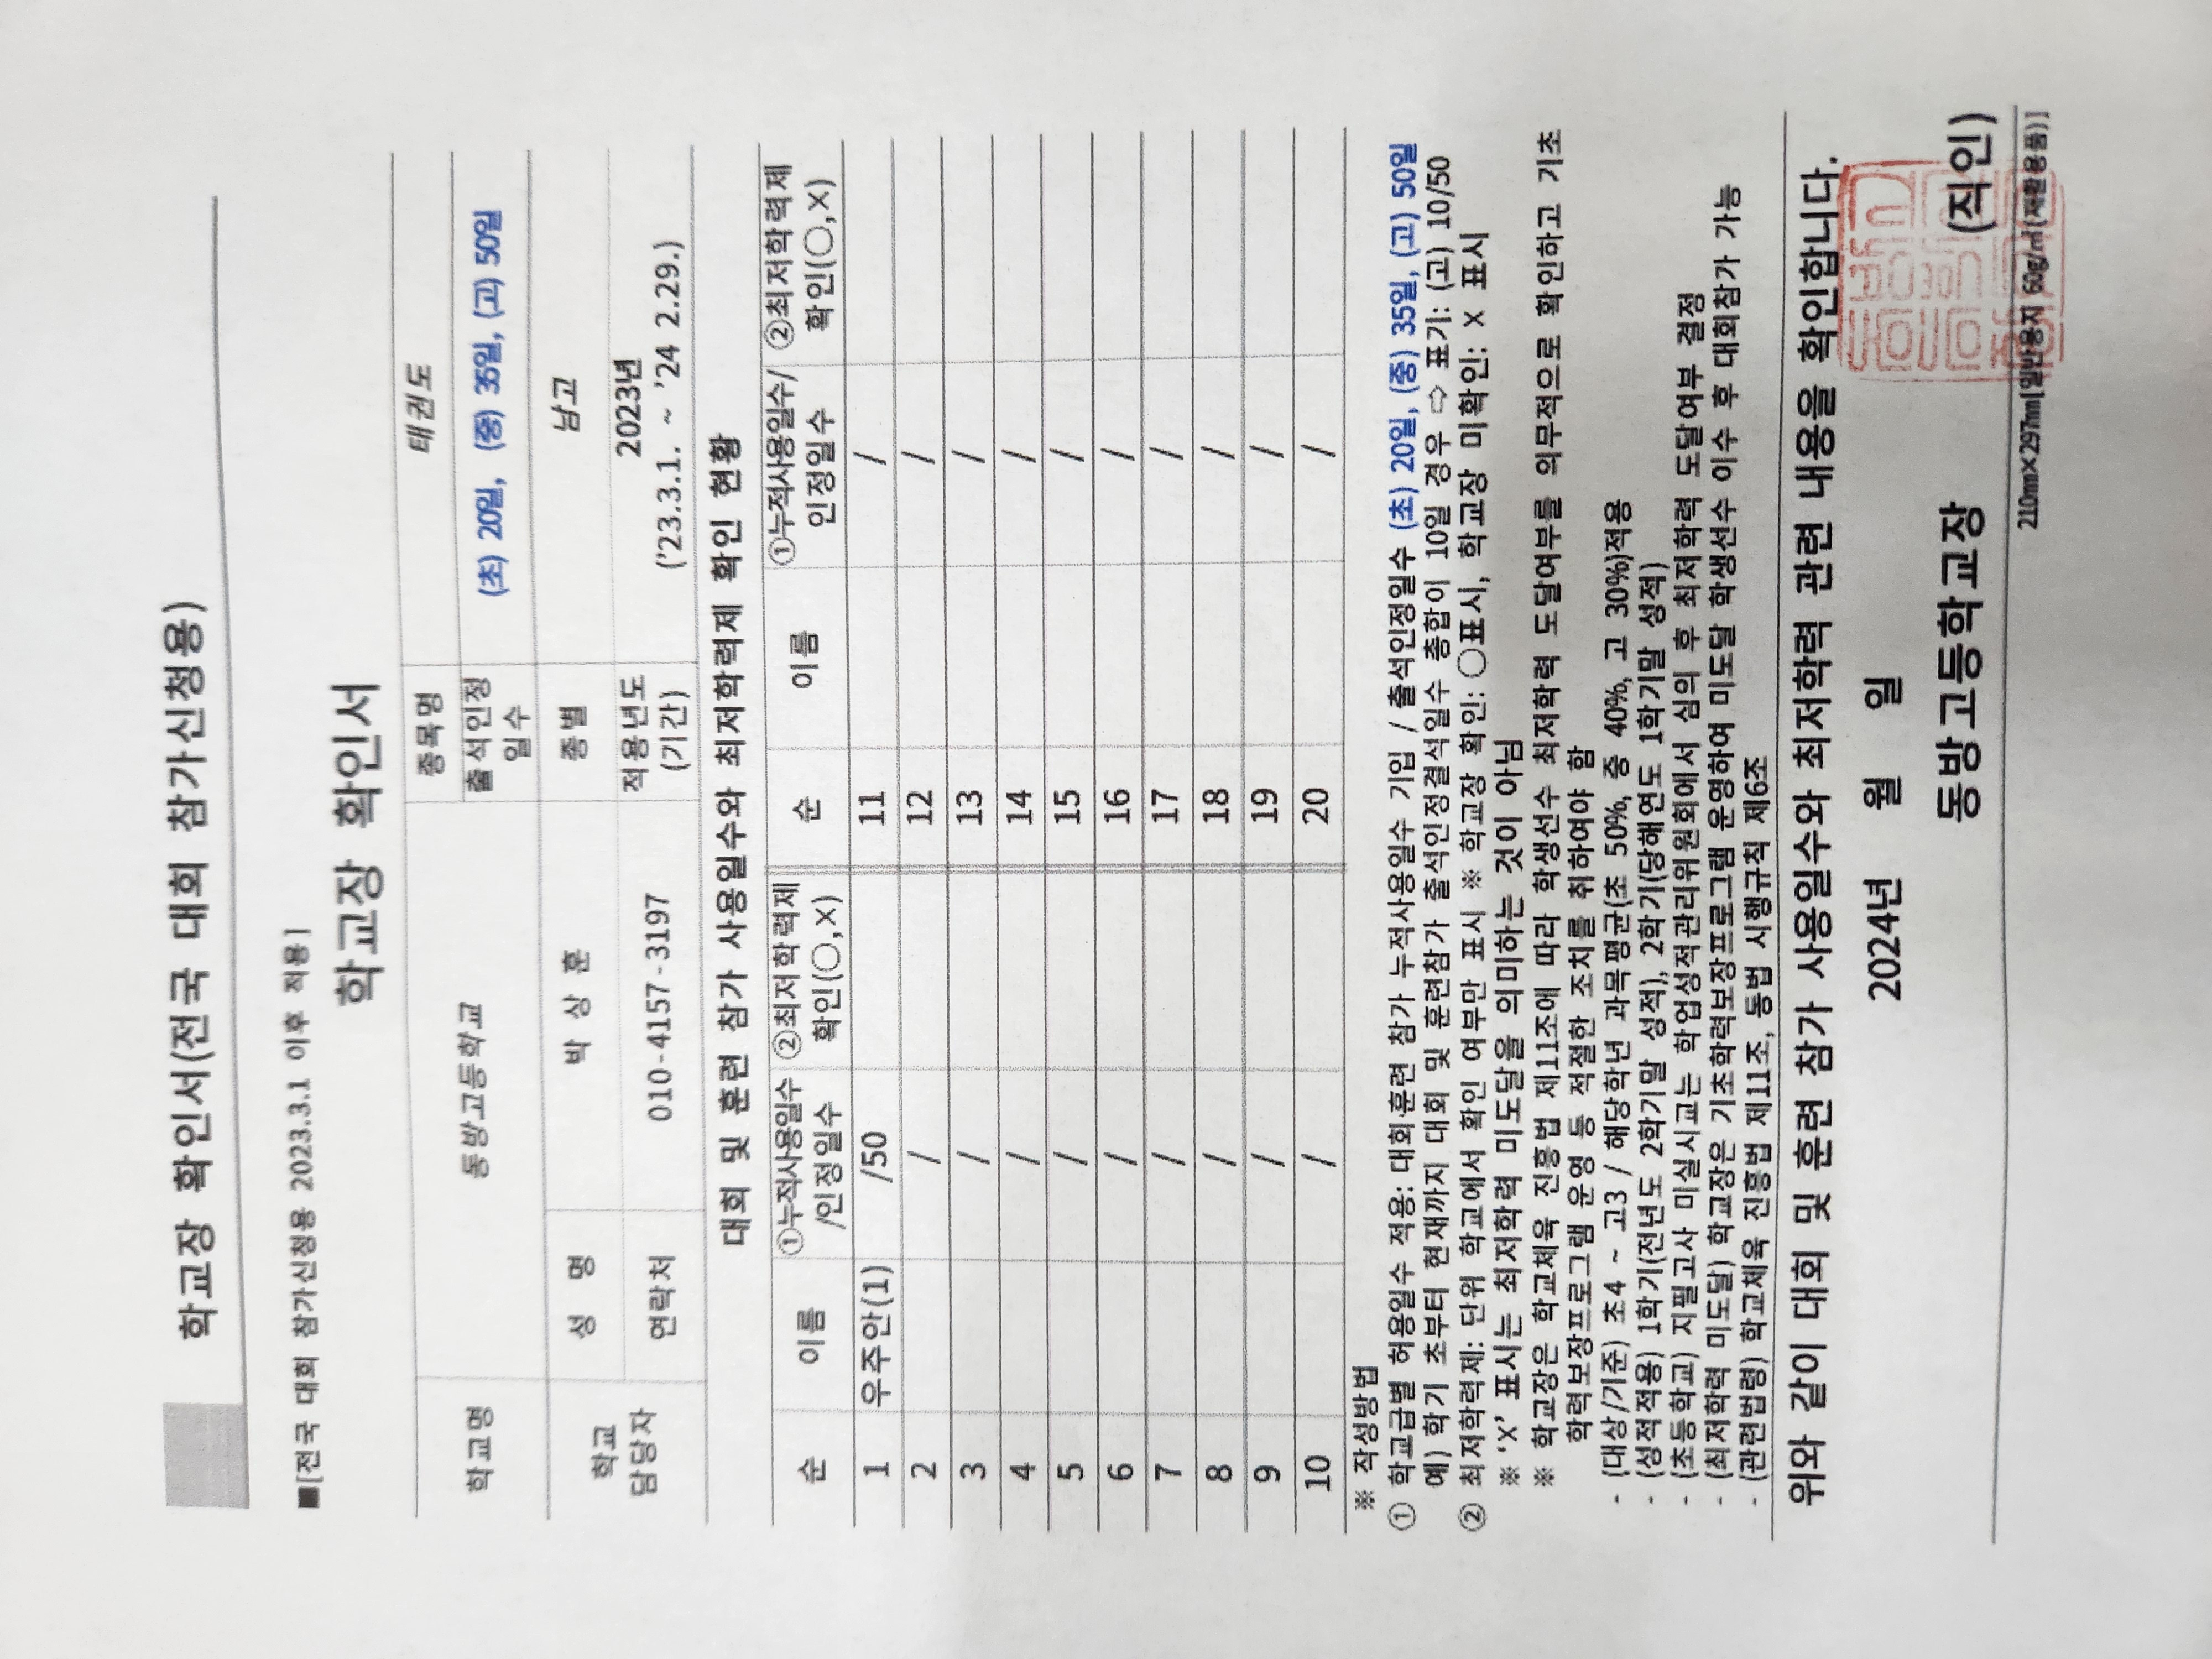 학교장 확인서(전국 대회 참가신청용)
■[전국 대회 참가신청용 2023.3.1 이후 적용]
학교장 확인서
학교명 동방고등학교 종목명 태권도
출석인정 일수 (초) 20일, (중) 35일, (고) 50일
학교 담당자 성 명 박 상 훈 종별 남고
연락처 010-4157-3197 적용년도 (기간) 2023년 ('23.3.1. ~ '24 2.29.)
대회 및 훈련 참가 사용일수와 최저학력제 확인 현황
순 이름 ①누적사용일수 /인정일수 ②최저학력제 확인(○,X) 순 이름 ①누적사용일수/ 인정일수 ②최저학력제 확인(○,X)
1 우주안(1) /50 11 /
2 / 12 /
3 / 13 /
4 / 14 /
5 / 15 /
6 / 16 /
7 / 17 /
8 / 18 /
9 / 19 /
10 / 20 /
※ 작성방법
① 학교급별 허용일수 적용: 대회·훈련 참가 누적사용일수 기입 / 출석인정일수 (초) 20일, (중) 35일, (고) 50일
예) 학기 초부터 현재까지 대회 및 훈련참가 출석인정결석일수 총합이 10일 경우 ⇨ 표기: (고) 10/50
② 최저학력제: 단위 학교에서 확인 여부만 표시 ※ 학교장 확인: ○표시, 학교장 미확인: X 표시
※ 'X' 표시는 최저학력 미도달을 의미하는 것이 아님
※ 학교장은 학교체육 진흥법 제11조에 따라 학생선수 최저학력 도달여부를 의무적으로 확인하고 기초
학력보장프로그램 운영 등 적절한 조치를 취하여야 함
- (대상/기준) 초4 ~ 고3 / 해당학년 과목평균(초 50%, 중 40%, 고 30%)적용
- (성적적용) 1학기(전년도 2학기말 성적), 2학기(당해연도 1학기말 성적)
- (초등학교) 지필고사 미실시교는 학업성적관리위원회에서 심의 후 최저학력 도달여부 결정
- (최저학력 미도달) 학교장은 기초학력보장프로그램 운영하여 미도달 학생선수 이수 후 대회참가 가능
- (관련법령) 학교체육 진흥법 제11조, 동법 시행규칙 제6조
위와 같이 대회 및 훈련 참가 사용일수와 최저학력 관련 내용을 확인합니다.
2024년 월 일
동방고등학교장 (직인)
210㎜×297㎜[일반용지 60g/㎡(재활용품)]